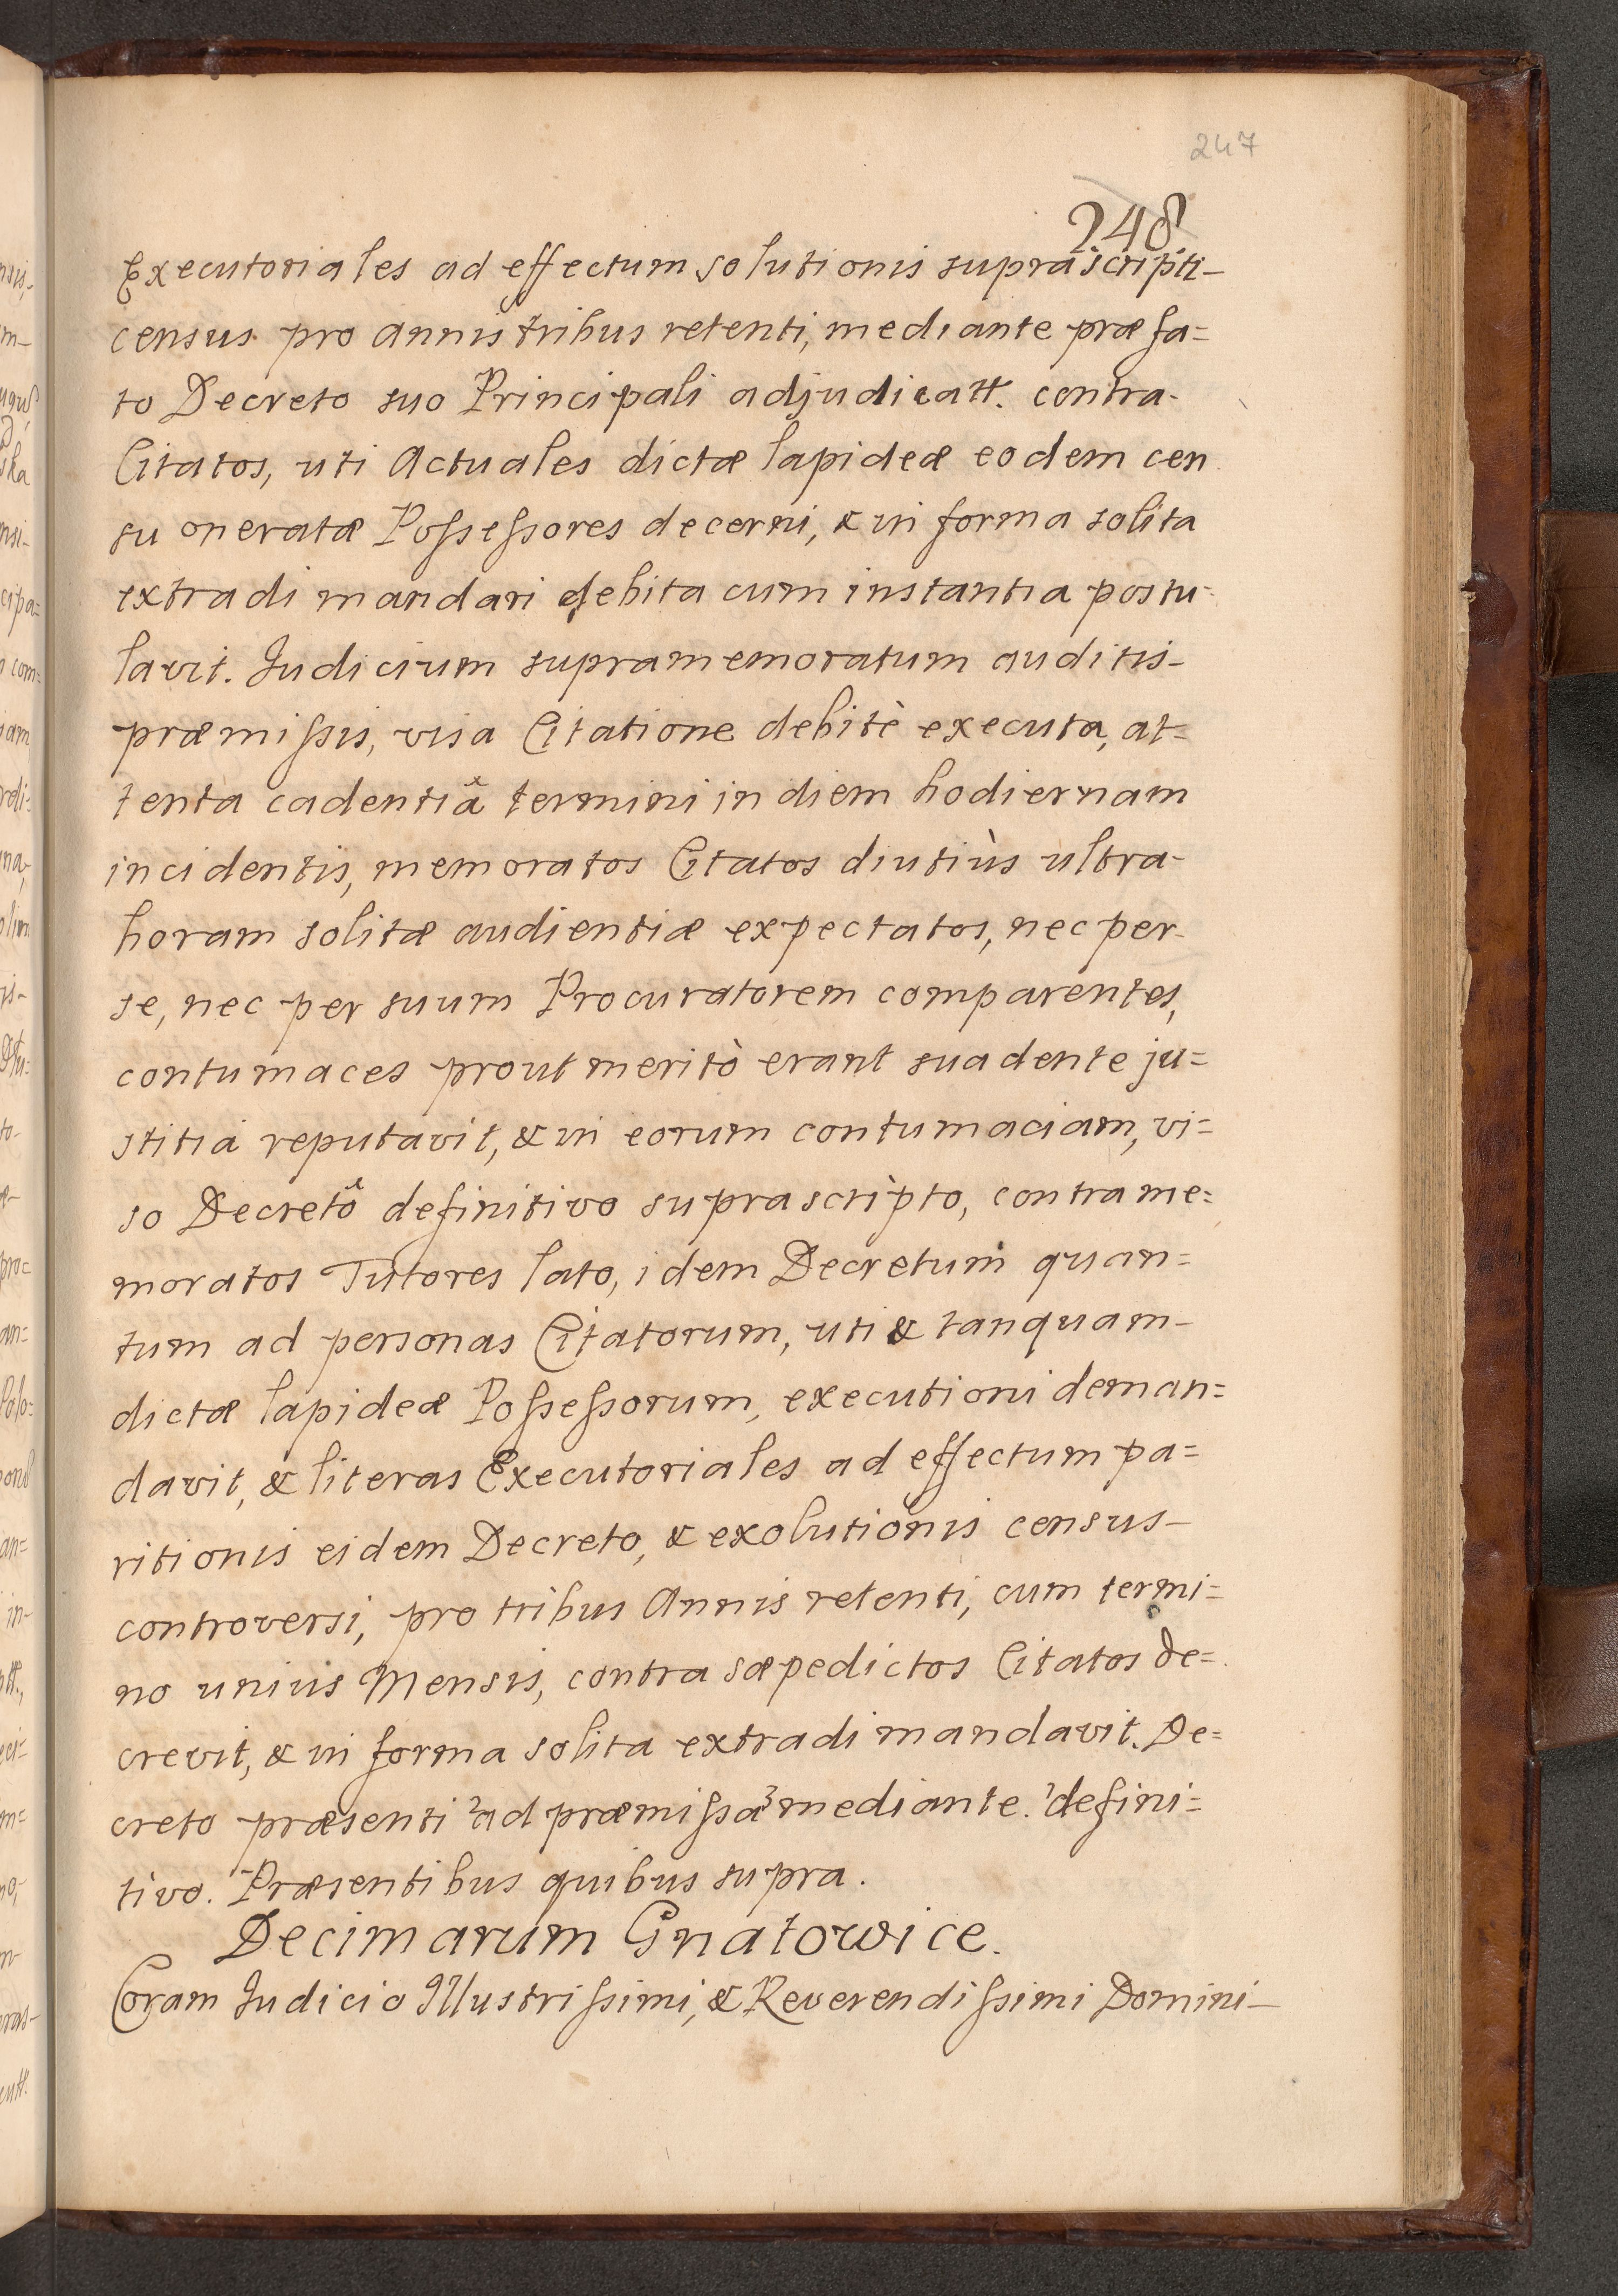 247
248
Executoriales ad effectum solutionis suprascripti-
census pro annis tribus retenti, mediante præfa=
to Decreto suo Principali adjudicatt. contra-
Citatos, uti Actuales dictæ lapideæ eodem cen
su oneratæ Possessores decerni, & in forma solita
extradi mandari debita cum instantia postu=
lavit. Judicium supramemoratum auditis-
præmissis, visa Citatione debitè executa, at=
tenta cadentiâ termini in diem hodiernam
incidentis, memoratos Citatos diutiùs ultra-
horam solitæ audientiæ expectatos, nec per-
se, nec per suum Procuratorem comparentes,
contumaces prout meritò erant suadente ju=
stitia reputavit, & in eorum contumaciam, vi=
so Decretô definitivo suprascripto, contra me=
moratos Tutores lato, idem Decretum quan=
tum ad personas Citatorum, uti & tanquam-
dictæ lapideæ Possessorum, executioni deman=
davit, & literas Executoriales ad effectum pa=
ritionis eidem Decreto, & exolutionis census-
controversi, pro tribus Annis retenti, cum termi=
no unius Mensis, contra sæpedictos Citatos de=
crevit, & in forma solita extradi mandavit. De=
creto præsenti ²ad præmissa ³mediante. ¹defini=
tivo. Præsentibus quibus supra.
Decimarum Gnatowice.
Coram Judicio Illustrissimi, & Reverendissimi Domini-